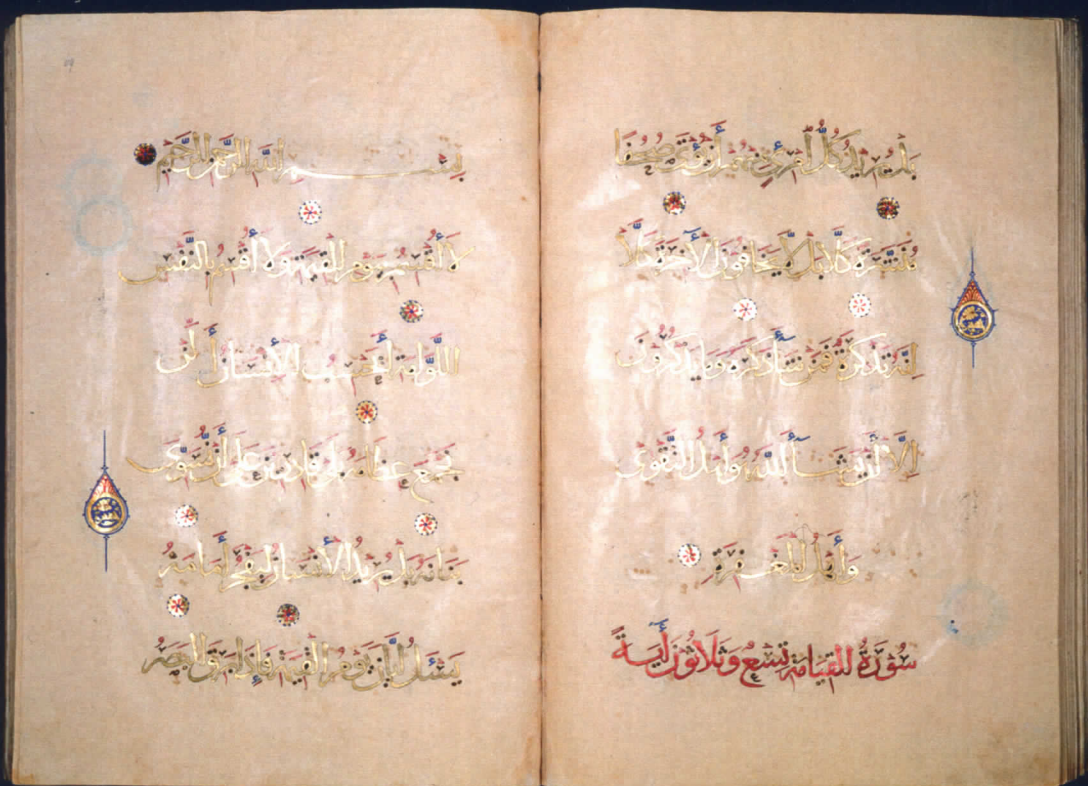 بَلْ يُرِيدُ كُلُّ ٱمْرِئٍ مِنْهُمْ أَنْ يُؤْتَىٰ صُحُفًا
مُنَشَّرَةً كَلَّا بَل لَّا يَخَافُونَ ٱلْآخِرَةَ كَلَّا
إِنَّهُ تَذْكِرَةٌ فَمَنْ شَاءَ ذَكَرَهُ وَمَا يَذْكُرُونَ
إِلَّا أَنْ يَشَاءَ ٱللَّهُ هُوَ أَهْلُ ٱلتَّقْوَىٰ
وَأَهْلُ ٱلْمَغْفِرَةِ
سُورَةُ ٱلْقِيَامَةِ تِسْعٌ وَثَلَاثُونَ آيَةً
بِسْمِ ٱللَّهِ ٱلرَّحْمَٰنِ ٱلرَّحِيمِ
لَا أُقْسِمُ بِيَوْمِ ٱلْقِيَٰمَةِ وَلَا أُقْسِمُ بِٱلنَّفْسِ
ٱللَّوَّامَةِ أَيَحْسَبُ ٱلْإِنْسَانُ أَلَّنْ
نَجْمَعَ عِظَامَهُ بَلَىٰ قَادِرِينَ عَلَىٰ أَنْ نُسَوِّيَ
بَنَانَهُ بَلْ يُرِيدُ ٱلْإِنْسَانُ لِيَفْجُرَ أَمَامَهُ
يَسْئَلُ أَيَّانَ يَوْمُ ٱلْقِيَٰمَةِ فَإِذَا بَرِقَ ٱلْبَصَرُ